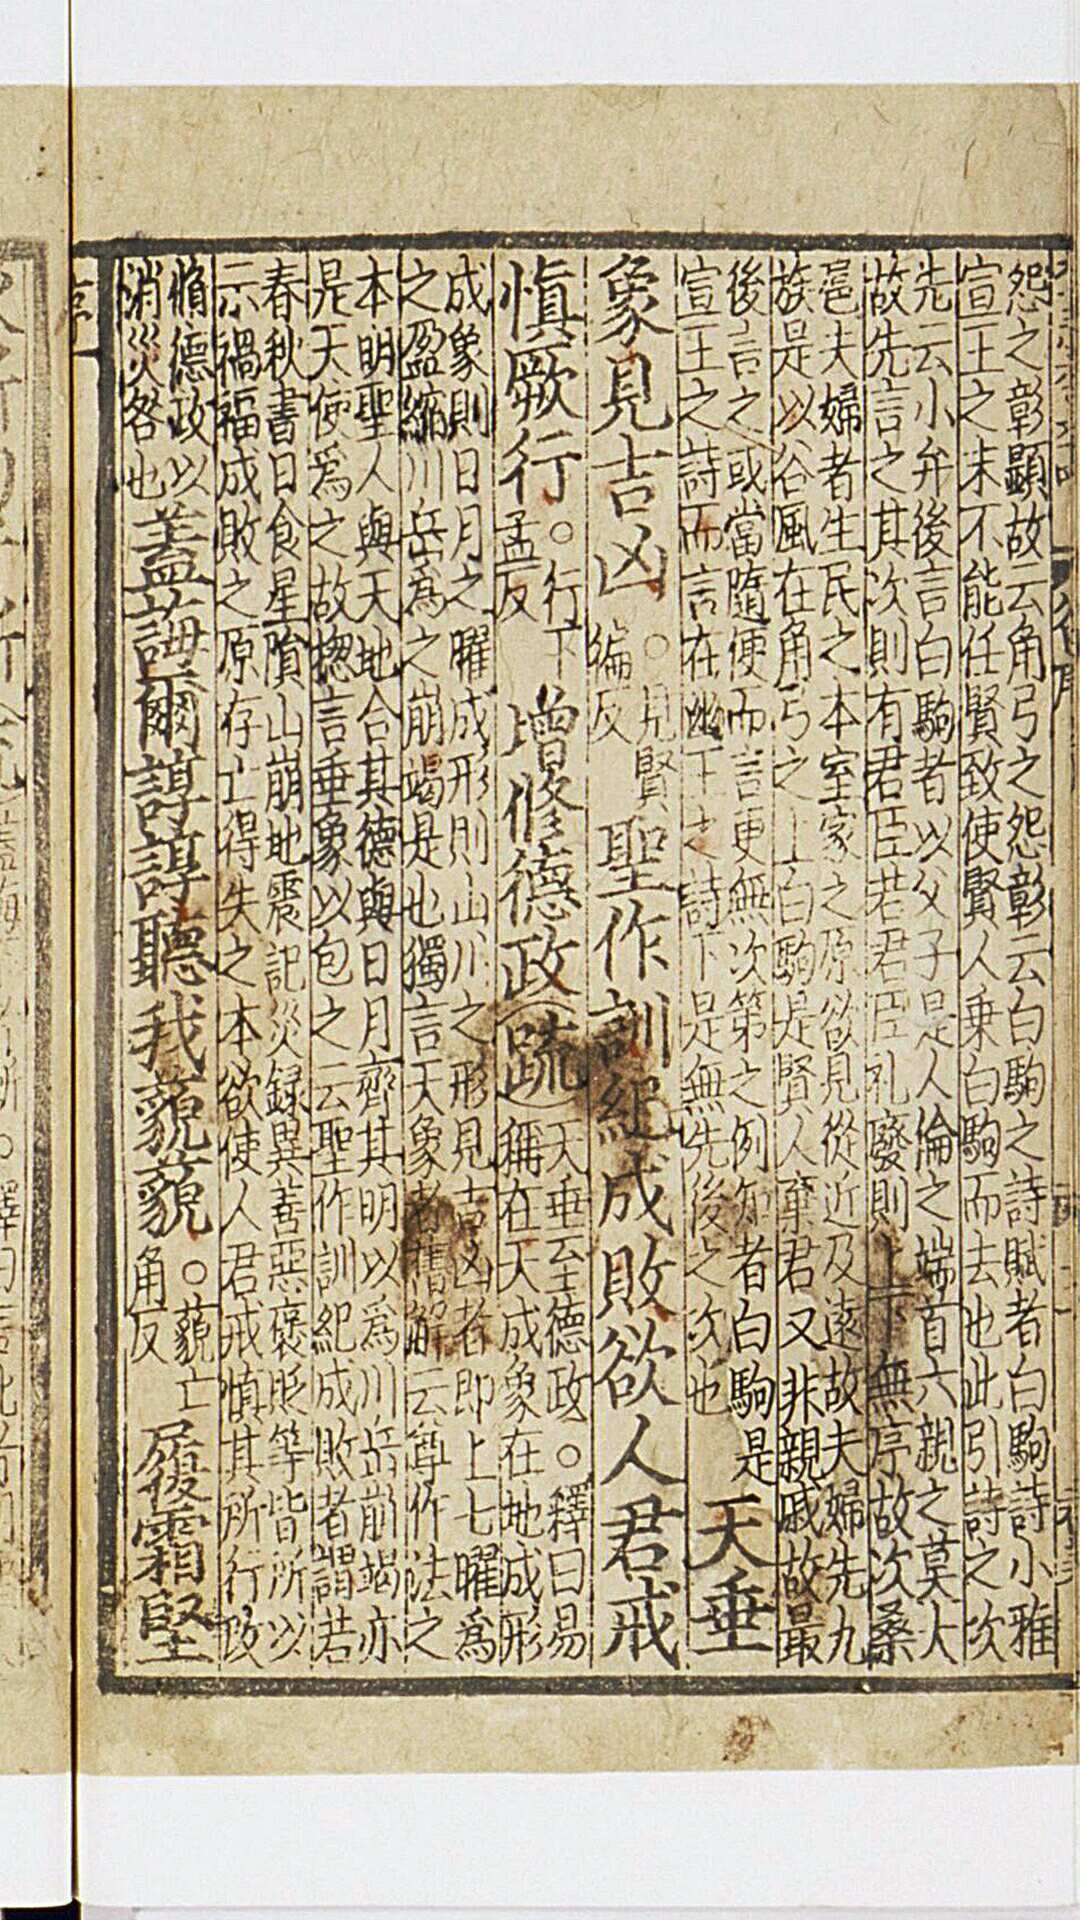 怨之彰顯故云角弓之怨彰云白駒之詩賦者白駒詩小雅
宣王之末不能任賢致使賢人乘白駒而去也此引詩之次
先云小弁後言白駒者以父子是人倫之端首六親之莫大
故先言之其次則有君臣若君臣礼廢則上下無序故次桑
扈夫婦者生民之本室家之原欲見從近及遠故夫婦先九
族是以谷風在角弓之上白駒是賢人棄君又非親戚故最
後言之或當隨便而言更無次第之例知者白駒是
宣王之詩而言在幽王之詩下是無先後之次也
天垂
象見吉凶
○見賢
徧反
聖作訓紀成敗欲人君戒
慎厥行
○行下
孟反
增修德政
疏
天垂至德政○釋曰易
稱在天成象在地成形
成象則日月之曜成形則山川之形見吉凶者即上七曜爲
之盈縮川岳為之崩竭是也獨言天象者舊解云尊作法之
本明聖人與天地合其德與日月齊其明以爲川岳崩竭亦
是天使爲之故揔言垂象以包之云聖作訓紀成敗者謂若
春秋書日食星隕山崩地震記災録異善惡褒貶等皆所以
示禍福成敗之原存亡得失之本欲使人君戒慎其所行政
脩德政以
消災咎也
蓋誨爾諄諄聽我藐藐
○藐亡
角反
履霜堅